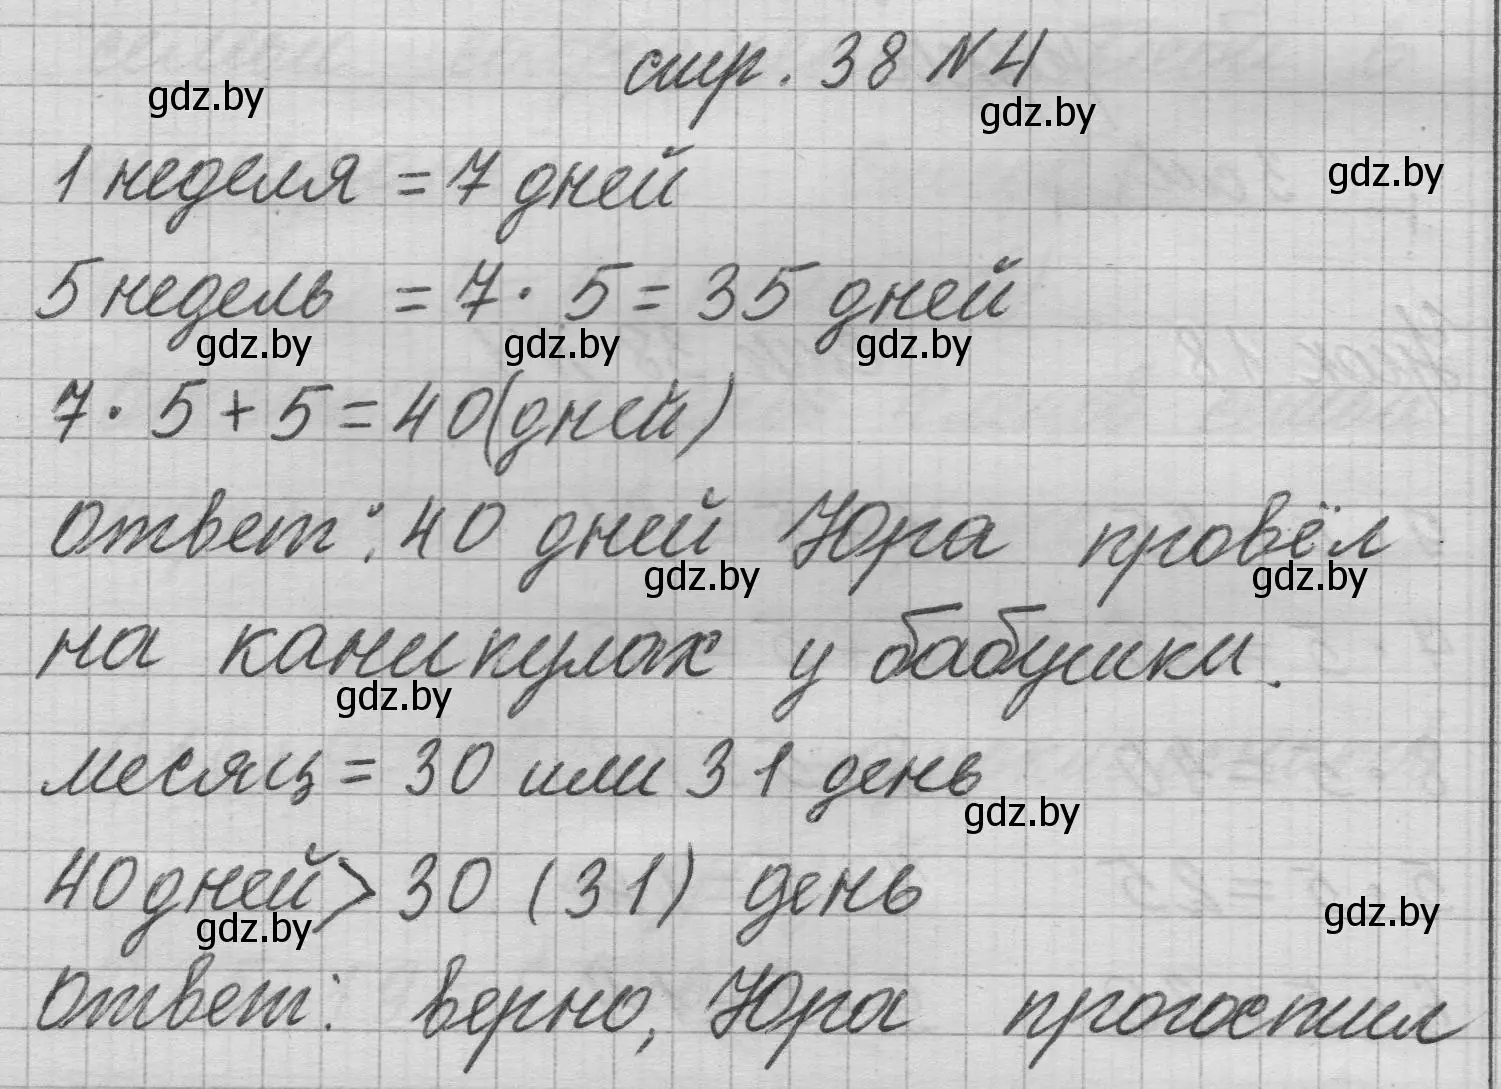 стр. 38 N 4
gdz.by
gdz.by
1 неделя = 7 дней
gdz.by
5 недель = 7 · 5 = 35 дней
gdz.by gdz.by gdz.by
7 · 5 + 5 = 40 (дней)
ответ: 40 дней Юра провёл
gdz.by gdz.by
на каникулах у бабушки.
gdz.by
месяц = 30 или 31 день
gdz.by
40 дней > 30 (31) день
gdz.by gdz.by
ответ: верно, Юра прогостил